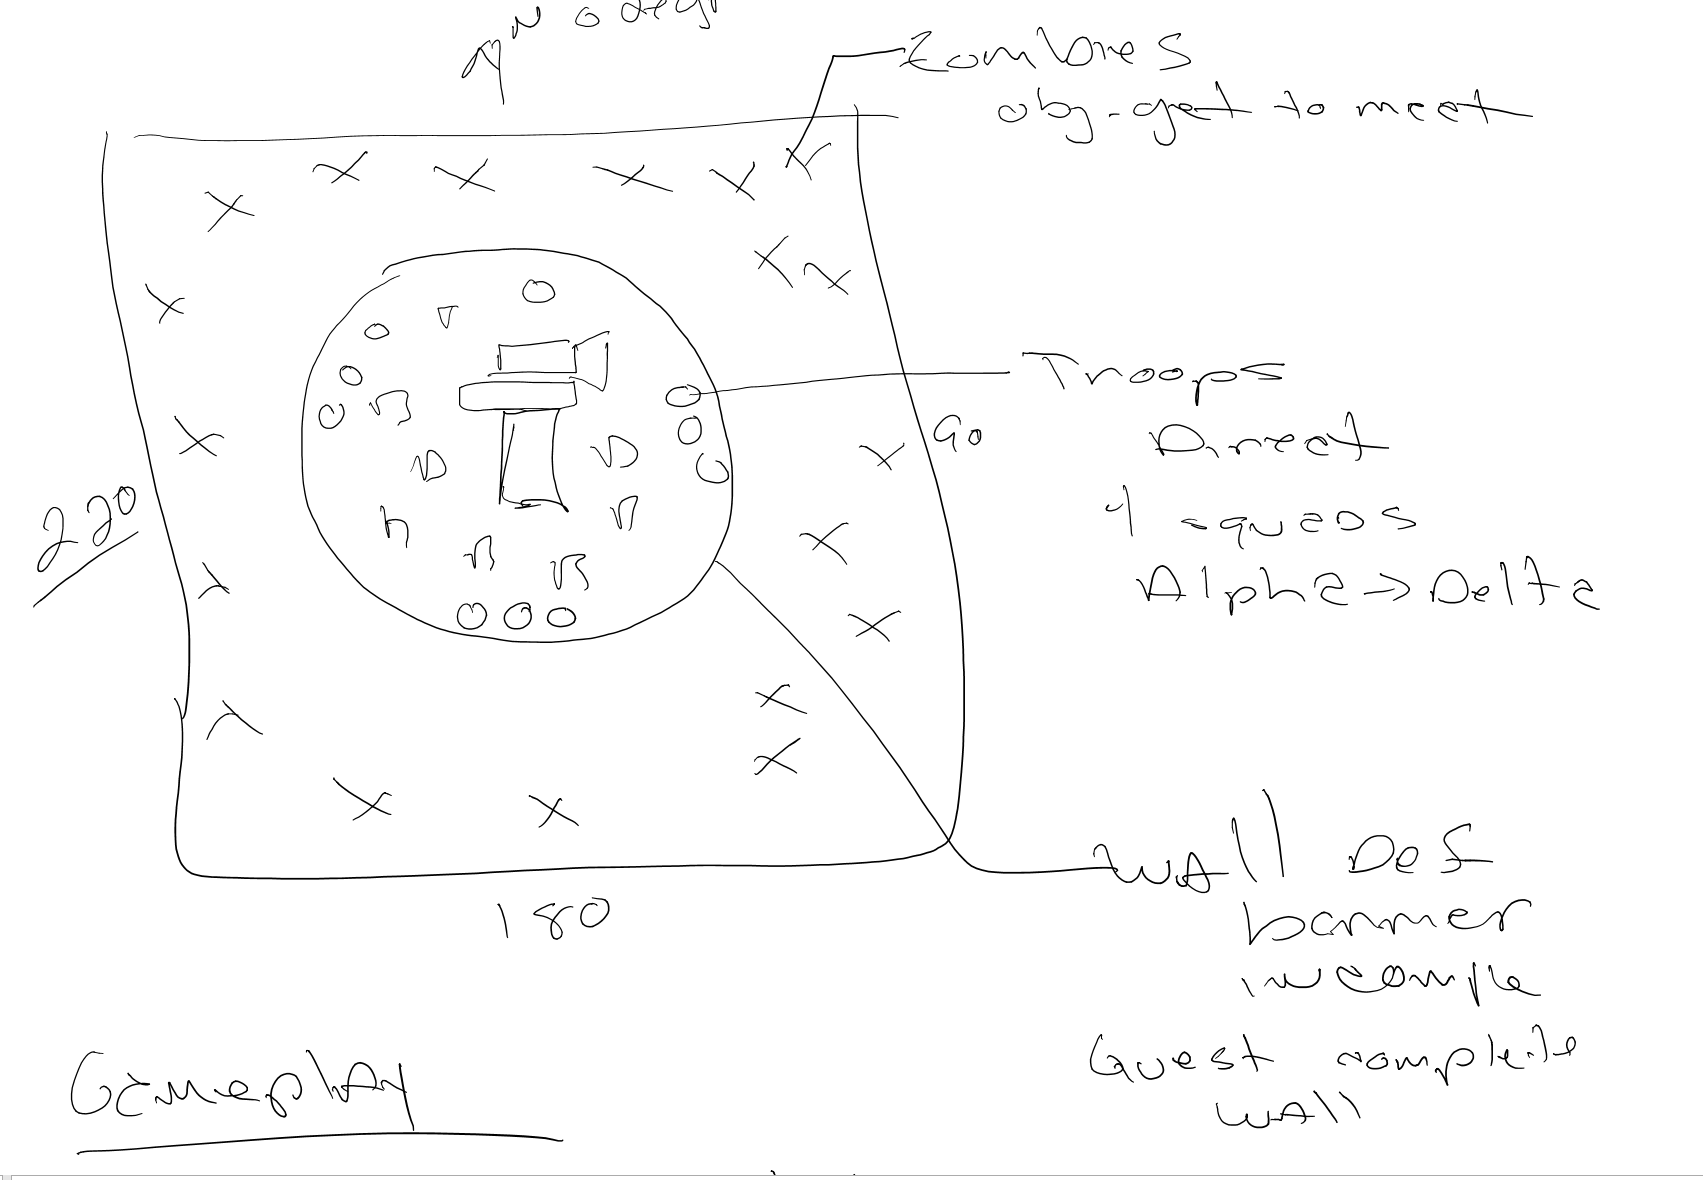 N 0 deg
Zombies
obj - get to meat
Troops
90
Direct
4 squads
220
Alpha → Delta
Wall Def
180
barrier
incomple
Quest complete
Gameplay
wall